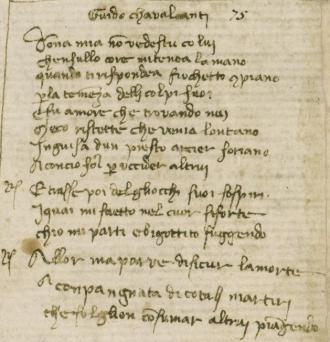 Guido chavalcanti 75
Dona mia nõ vedestu co lui
chensullo core mi tenea la mano
quando ti rispondea fiochetto e piano
p la temeza delli colpi suoi
E fu amore che trovando noi
Meco ristette che venia lontano
Inguisa dun presto arcier soriano
Aconcio sol p uccider altrui
E trasse poi delgliocchi suoi sospiri
I quai mi saetto nel cuor si forte
chio mi parti e sbigottito fuggendo
Allor ma parve di sicur la morte
Aconpangnata di cotalli martiri
che soglion consumar altrui piangendo